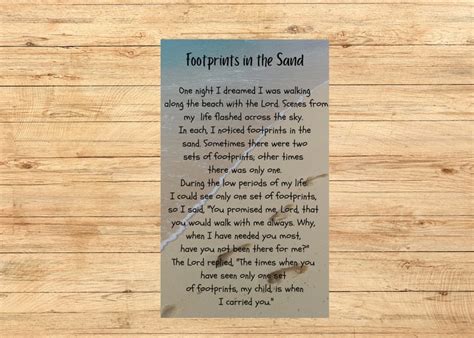 Footprints in the Sand
One night I dreamed I was walking
along the beach with the Lord. Scenes from
my life flashed across the sky.
In each, I noticed footprints in the
sand. Sometimes there were two
sets of footprints; other times
there was only one.
During the low periods of my life
I could see only one set of footprints,
so I said, "You promised me, Lord, that
you would walk with me always. Why,
when I have needed you most,
have you not been there for me?"
The Lord replied, "The times when you
have seen only one set
of footprints, my child, is when
I carried you."